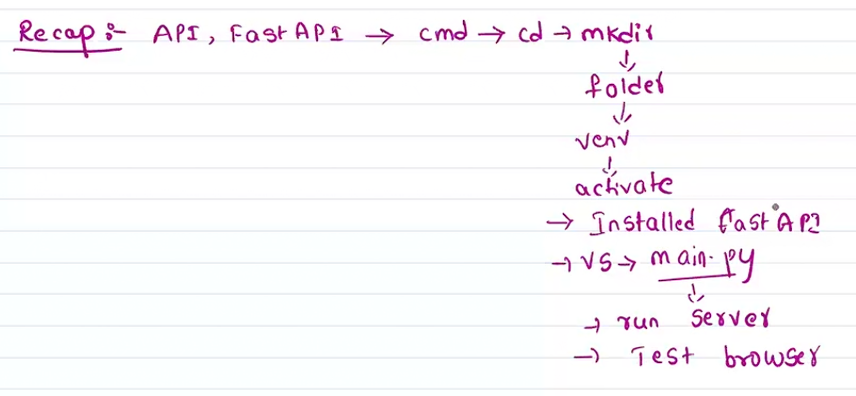 Recap :- API, FastAPI → cmd → cd → mkdir
↓
folder
↓
venv
↓
activate
→ Installed FastAPI
→ VS → main.py
↓
→ run server
→ Test browser